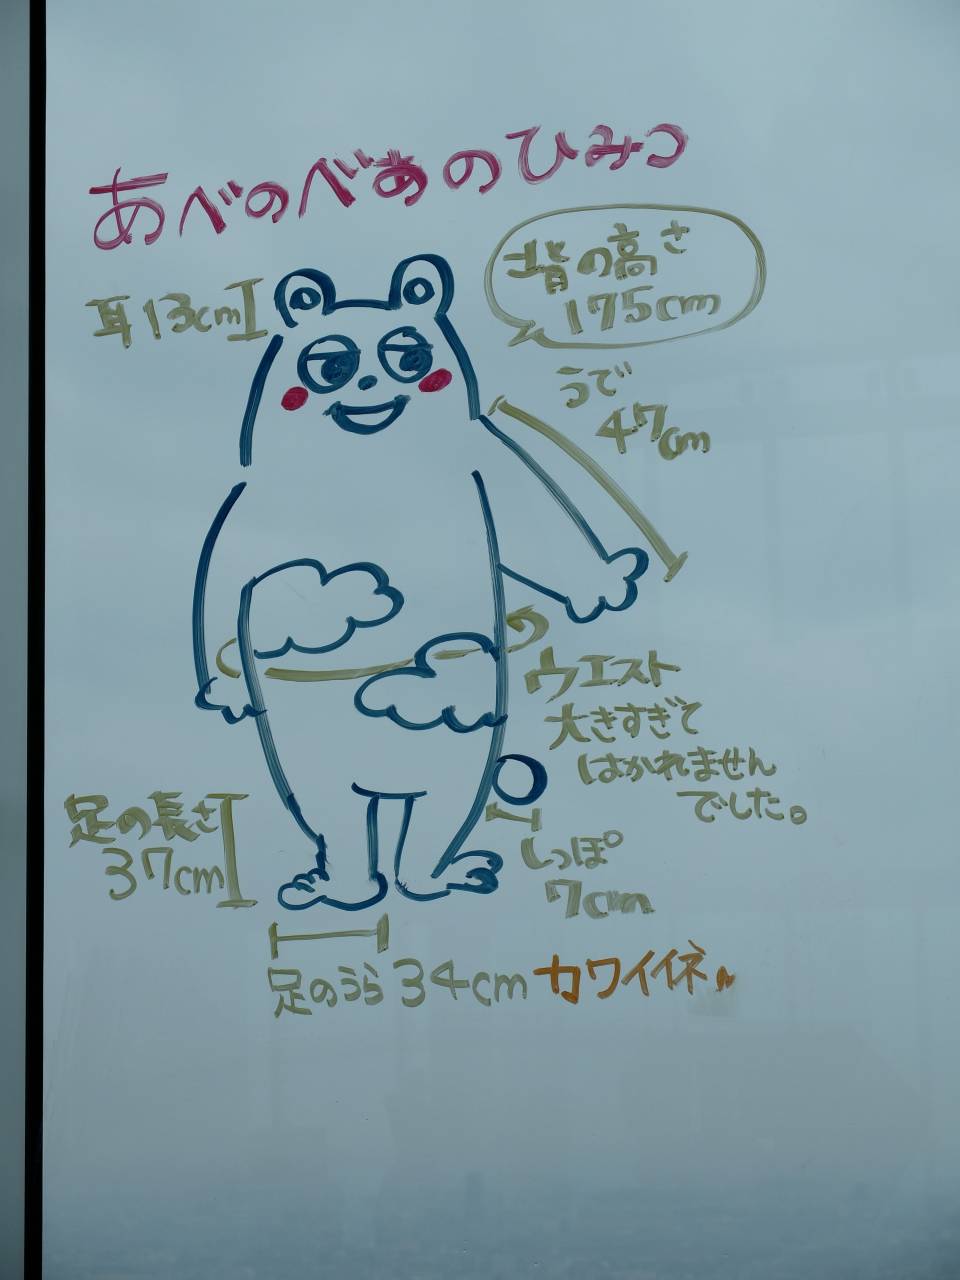 あべのべあのひみつ
背の高さ
175cm
耳13cm
うで
47cm
ウエスト
大きすぎて
はかれません
でした。
足の長さ
37cm
しっぽ
7cm
足のうら34cm カワイイネ